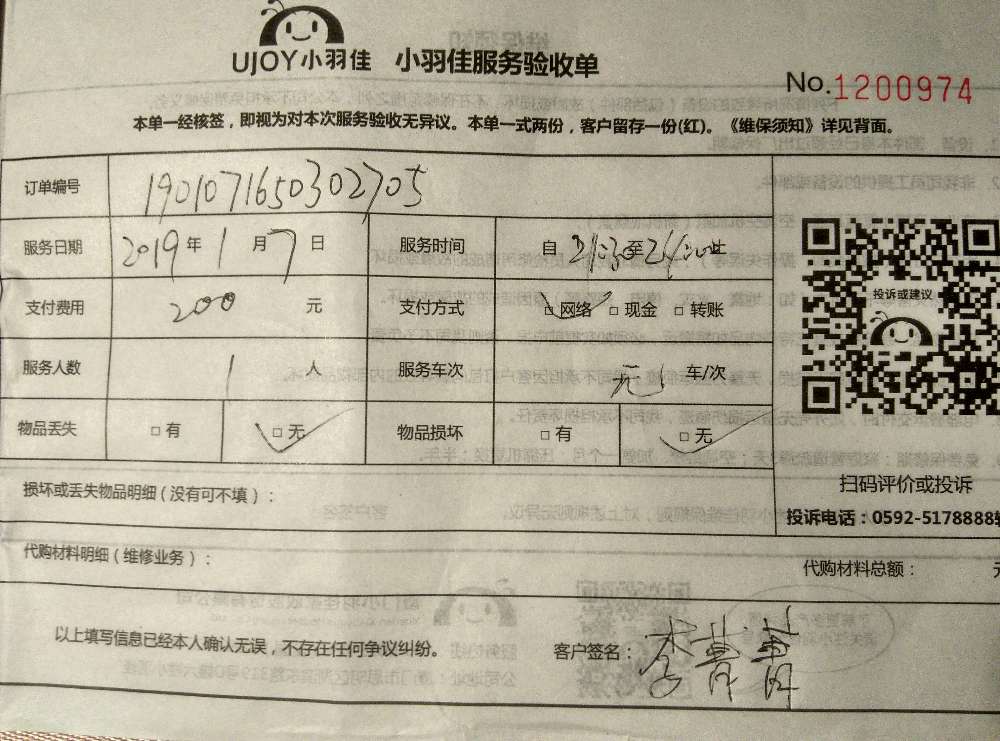 UJOY小羽佳 小羽佳服务验收单
No.1200974
本单一经核签，即视为对本次服务验收无异议。本单一式两份，客户留存一份(红)。《维保须知》详见背面。
订单编号 1901071650302705
服务日期 2019年1月7日 服务时间 自 至
支付费用 200 元 支付方式 □网络 □现金 □转账
服务人数 1 人 服务车次 元 车/次
物品丢失 □有 □无 物品损坏 □有 □无
投诉或建议
扫码评价或投诉
投诉电话：0592-5178888转
损坏或丢失物品明细（没有可不填）：
代购材料明细（维修业务）：
代购材料总额： 元
以上填写信息已经本人确认无误，不存在任何争议纠纷。 客户签名：李菁菁